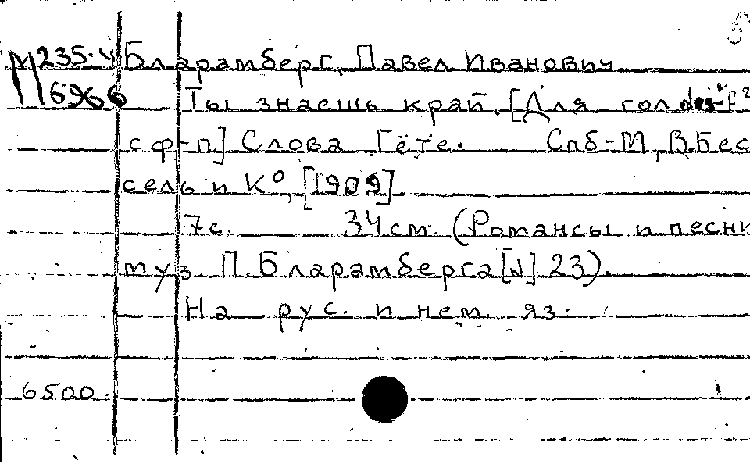 М 235.4 Бларамберг, Павел Иванович
Ты знаешь край. [Для гол.
с ф-п] Слова Гёте. Спб-М, В.Бес
сель и К°, [1909].
7с. 34см. (Романсы и песни
муз П. Бларамберга [№] 23).
На рус. и нем. яз.
6500